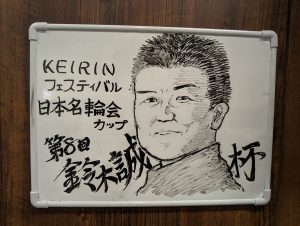 KEIRIN
フェスティバル
日本名輪会
カップ
第8回
鈴木誠 杯